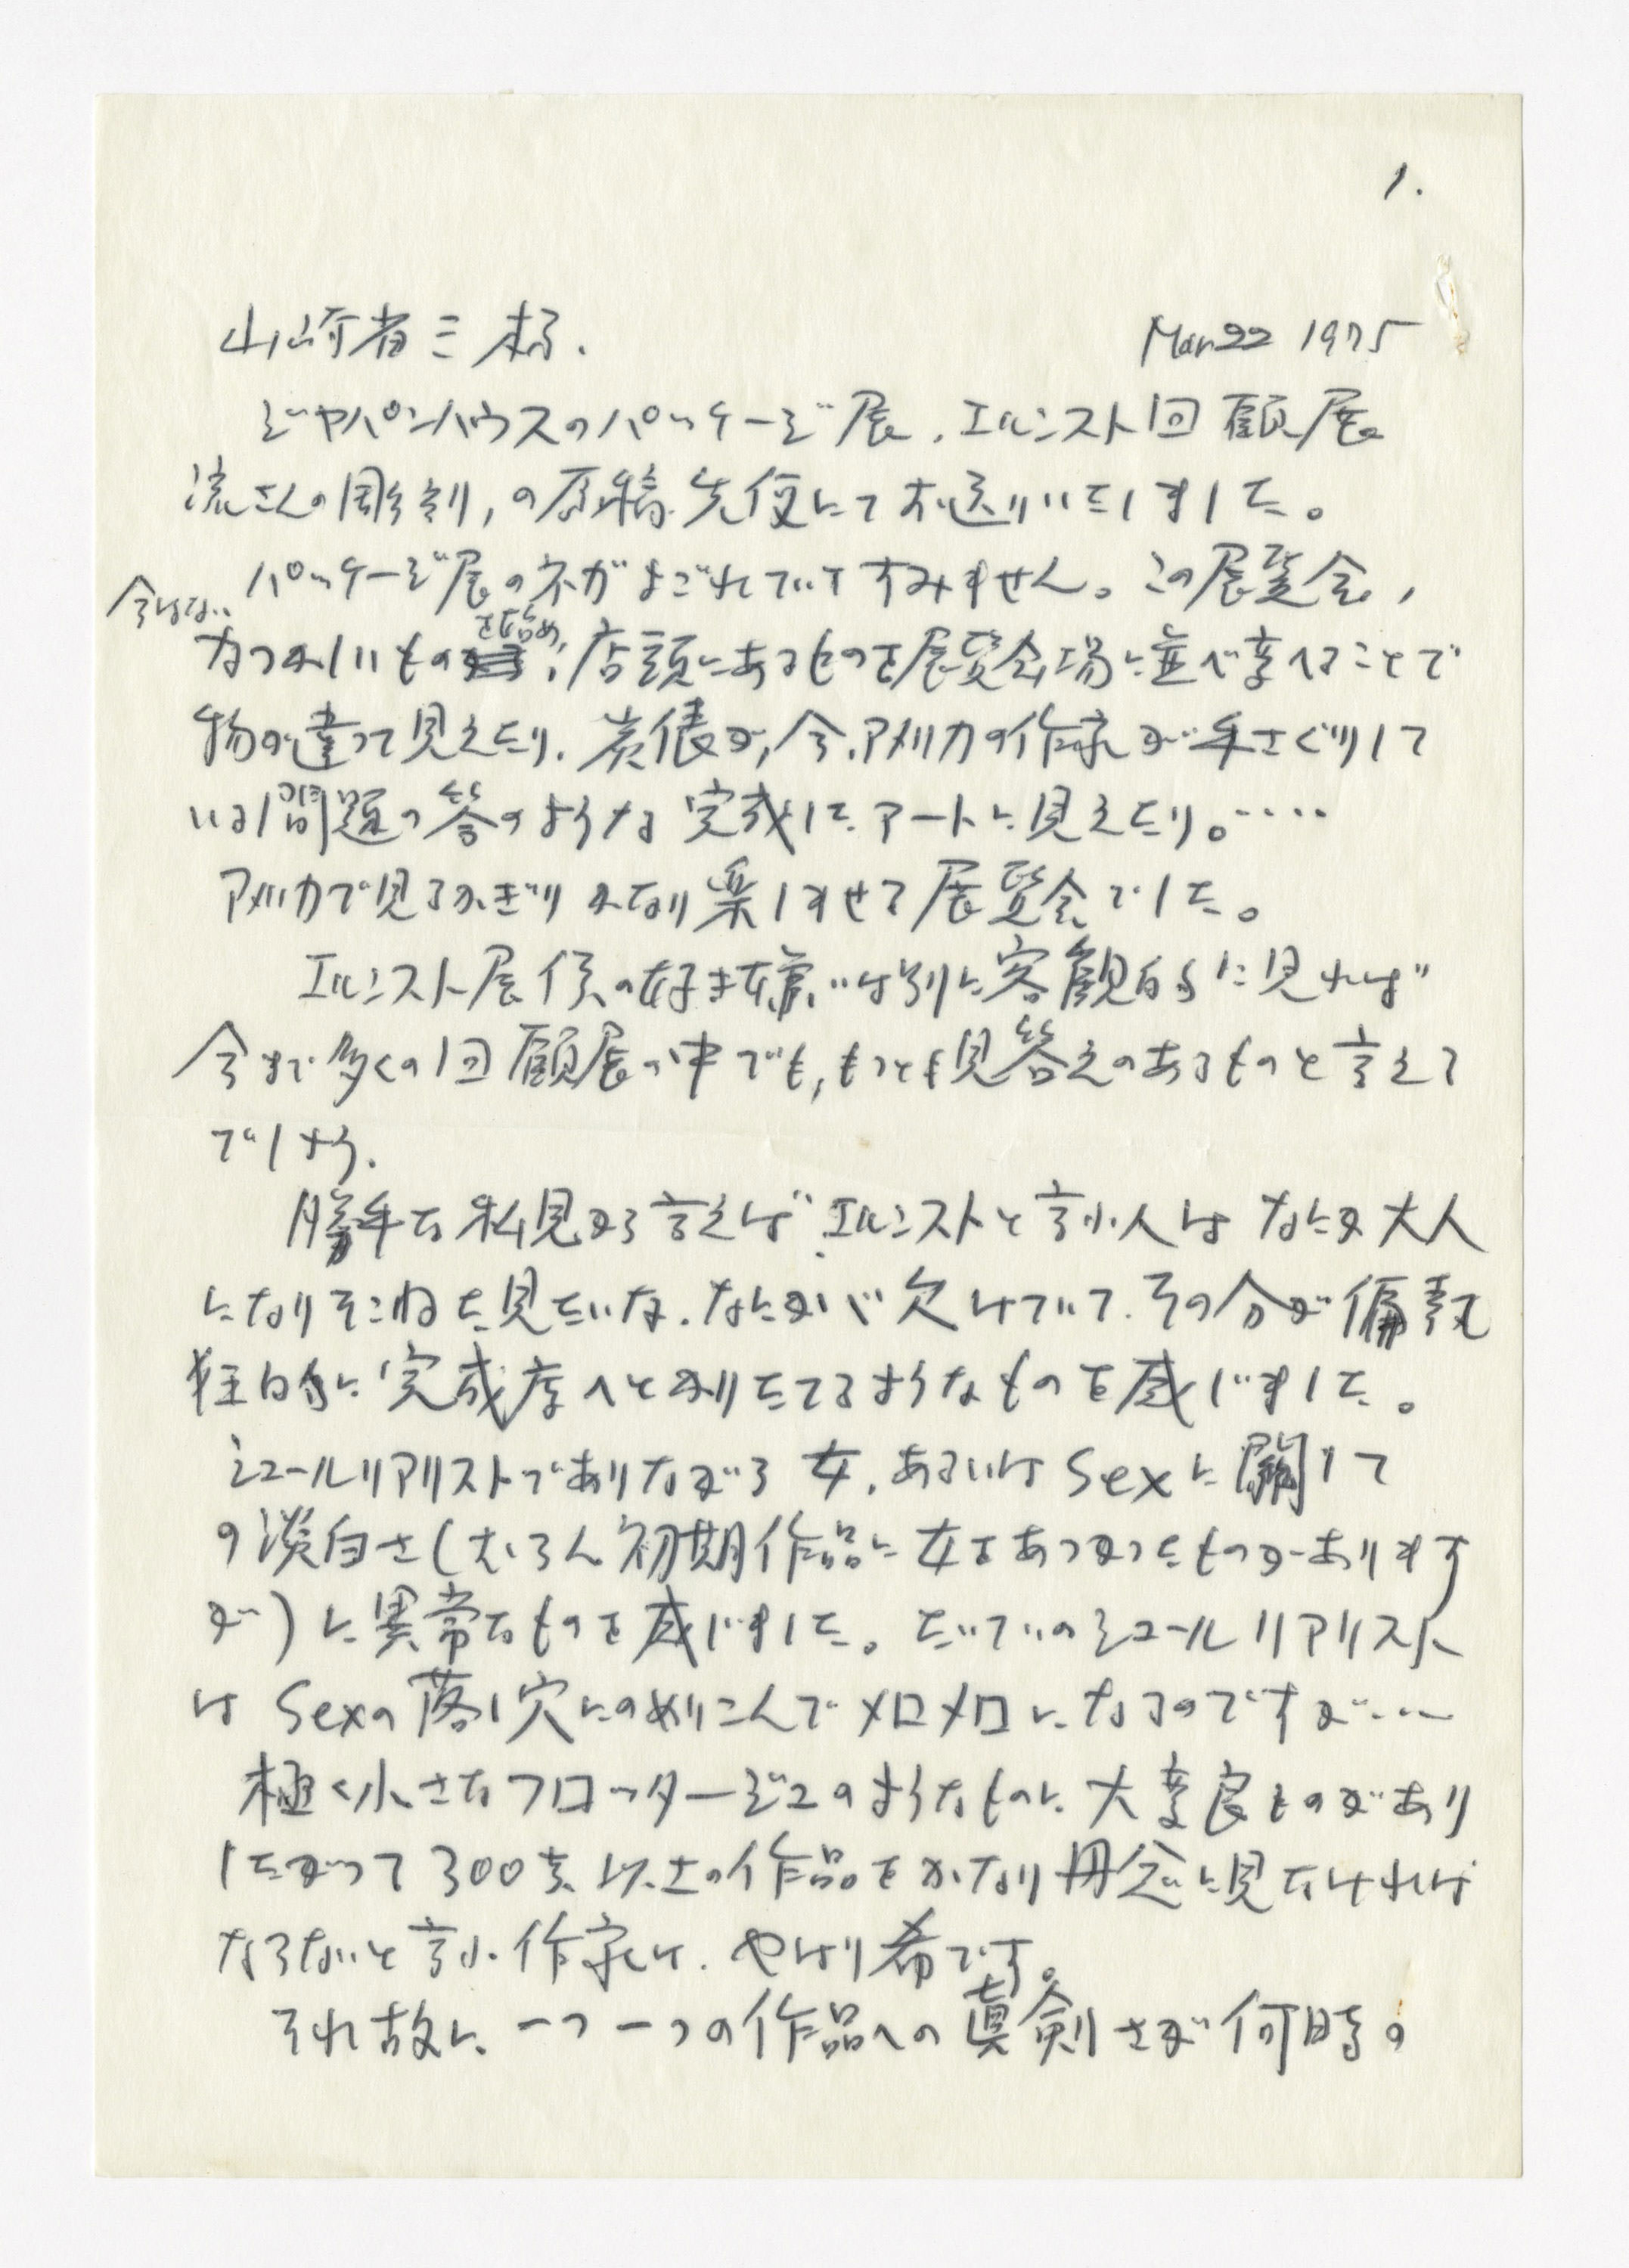 1.
山崎省三様.
Mar 22 1975
ジャパンハウスのパッケージ展,エルンスト回顧展
流さんの彫刻,の原稿先便にてお送りいたしました。
パッケージ展のネガよごれていてすみません。この展覧会,
今はない
なつかしいものを始め,店頭にあるものを展覧会場に並べ変へることで
物が違って見えたり.炭俵が,今,アメリカの作家が手さぐりして
いる問題の答のような完成したアートに見えたり。‥‥
アメリカで見るかぎりかなり楽しませる展覧会でした。
エルンスト展 僕の好き嫌いは別に客観的に見れば
今まで多くの回顧展の中でも,もっとも見答えのあるものと言える
でしょう.
勝手な私見から言えばエルンストと言ふ人は なにか大人
になりそこねた見たいな.なにかが欠けていて.その分が偏執
狂的に完成度へとかりたてるようなものを感じました。
シュールリアリストでありながら 女.あるいはSexに関して
の淡白さ(むろん初期作品に女をあつかったものがあります
が)に異常なものを感じました。たいていのシュールリアリスト
は Sexの落し穴にのめりこんでメロメロになるのですが‥‥
極く小さなフロッタージュのようなものに大変良ものがあり
したがって300点以上の作品をかなり丹念に見なければ
ならないと言ふ作家は.やはり希です。
それ故に一つ一つの作品への真剣さが何時の